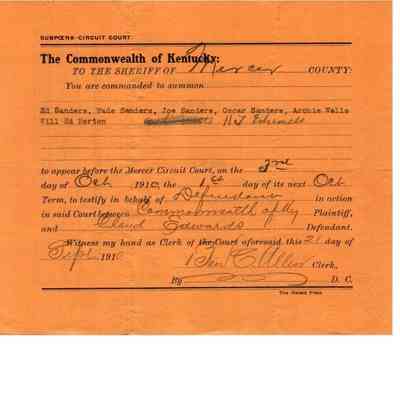 SUBPOENA-CIRCUIT COURT
The Commonwealth of Kentucky:
TO THE SHERIFF OF Mercer COUNTY:
You are commanded to summon
Ed Sanders, Wade Sanders, Joe Sanders, Oscar Sanders, Archie Walls
Will Ed Horton H J
to appear before the Mercer Circuit Court, on the 3rd
day of Oct 1910, the 1st day of its next Oct
Term, to testify in behalf of Defendant in action
in said Court between Commonwealth of Ky Plaintiff,
and Claud Edwards Defendant.
Witness my hand as Clerk of the Court aforesaid, this 21 day of
Sept 1910 Ben C Allen Clerk,
By D. C.